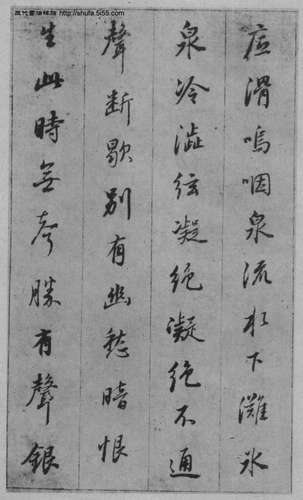 历代书法碑帖 http://shufa.5i55.com
底滑嗚咽泉流水下灘氷
泉冷澁弦凝絶凝絶不通
聲断歇别有幽愁暗恨
生此時無聲勝有聲銀